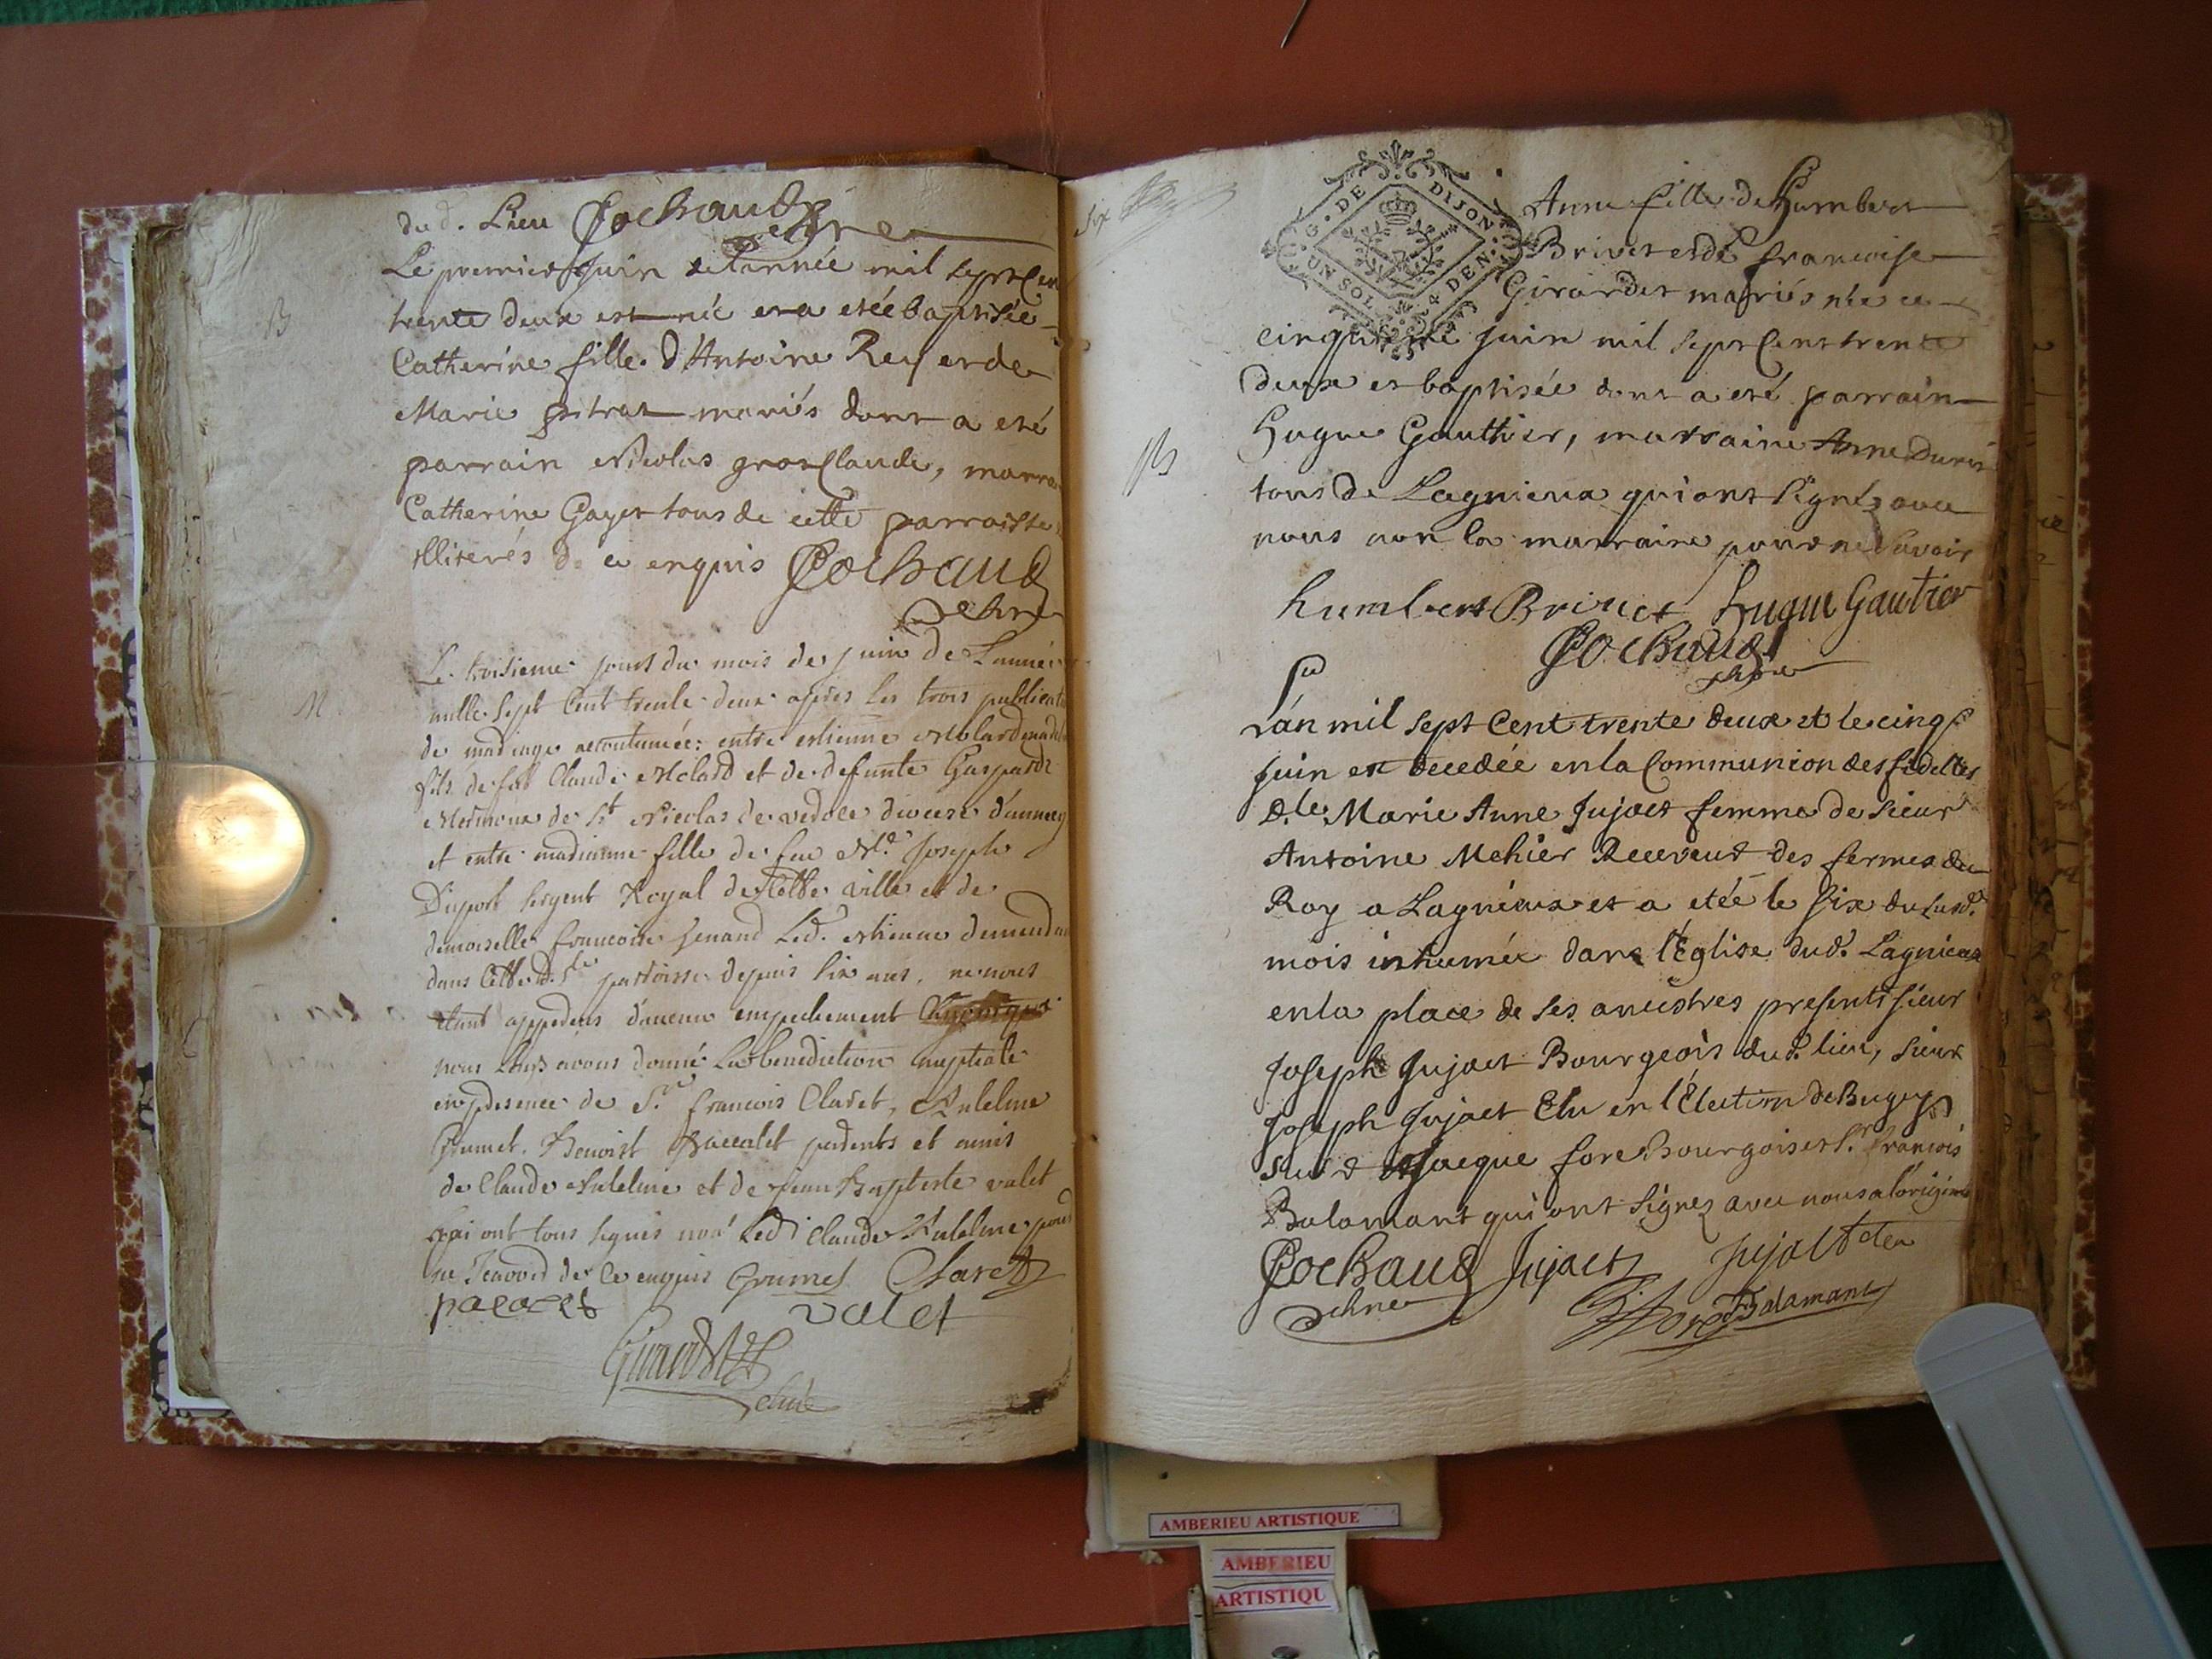 du d. Lieu Cochaud
chne
B
Le premier Juin de l'année mil sept Cent
trente deux est née et a etée baptisée
Catherine fille d'Antoine Rey et de
Marie pitrat mariés dont a eté
parrain Nicolas grosClaude, marra
Catherine Gayet tous de cette parroisse
illiterés de ce enquis Cochaud
chne
M
Le troisieme jour du mois de juin de L'année
mille sept Cent trente deux apres les trois publicat
de mariage accoutumées entre estienne
fils de feu Claude Molard et de defunte Gasparde
Mermoux de St Nicolas de vedole diocese d'annecy
et entre marianne fille de feu Me Joseph
Duport sergent Royal de Cette ville et de
demoiselle francoise Genand Led. estienne demeurant
dans Cette d. parroisse depuis six ans, ne nous
etant apparus d'aucun empechement
nous Leurs avons donné La benediction nuptiale
en presence de Sr francois Claret, Anthelme
Grumet, Benoist paccalet parents et amis
de Claude Anthelme et de jean Baptiste valet
qui ont tous signés non Led Claude Anthelme pour
ne Scavoir de Ce enquis Grumet Claret
pacalet valet
Girardet
curé
six
DIJON
G. DE
UN SOL
4 DEN.
Anne fille de Humbert
Brivet et de francoise
Girardet mariés née ce
cinquieme juin mil sept Cent trente
deux et baptisée dont a eté parrain
B
Hugue Gauthier, marraine Anne Duris
tous de Lagnieux qui ont signéz avec
nous non la marraine pour ne savoir
humbert Brivet hugue Gautier
Cochaud
chne
L'an mil sept Cent trente deux et le cinq
juin est decedée en la Communion des fidelles
D.le Marie Anne Jujact femme de sieur
Antoine Mehier Receveur des fermes du
Roy a Lagnieux et a etée le six du susd.
mois inhumée dans l'Eglise dud. Lagnieux
en la place de ses ancestres presents sieur
Joseph Jujact Bourgeois dud. lieu, sieur
Joseph Jujact Elu en l'Élection de Bugey
sieur Jacque fore Bourgois et Sr francois
Balamant qui ont signez avec nous a l'origine
Cochaud Jujact Jujact
chne fore Balamant
AMBERIEU ARTISTIQUE
AMBERIEU
ARTISTIQU